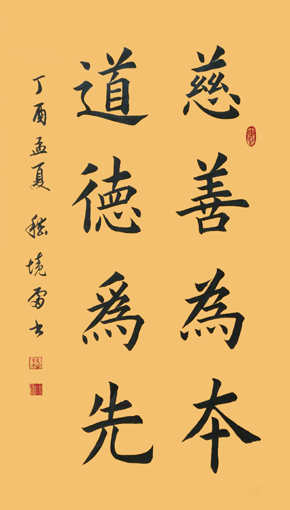 慈善為本
道德為先
丁酉孟夏 嵇境雷书